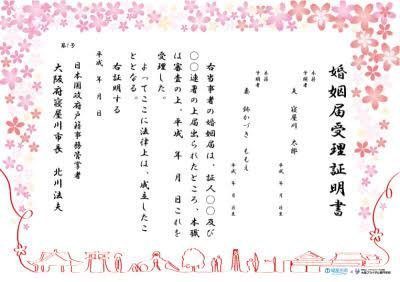 婚姻届受理証明書
本籍
筆頭者
夫 寝屋川 太郎
平成 年 月 日生
本籍
筆頭者
妻 鉢かづき ももえ
平成 年 月 日生
右当事者の婚姻届は、証人〇〇及び
〇〇連署の上届出られたところ、本職
は審査の上、平成 年 月 日これを
受理した。
よってここに法律上は、成立したこ
ととなる。
右証明する
第1号
平成 年 月 日
日本国政府戸籍事務管掌者
大阪府寝屋川市長 北川法夫
寝屋川市